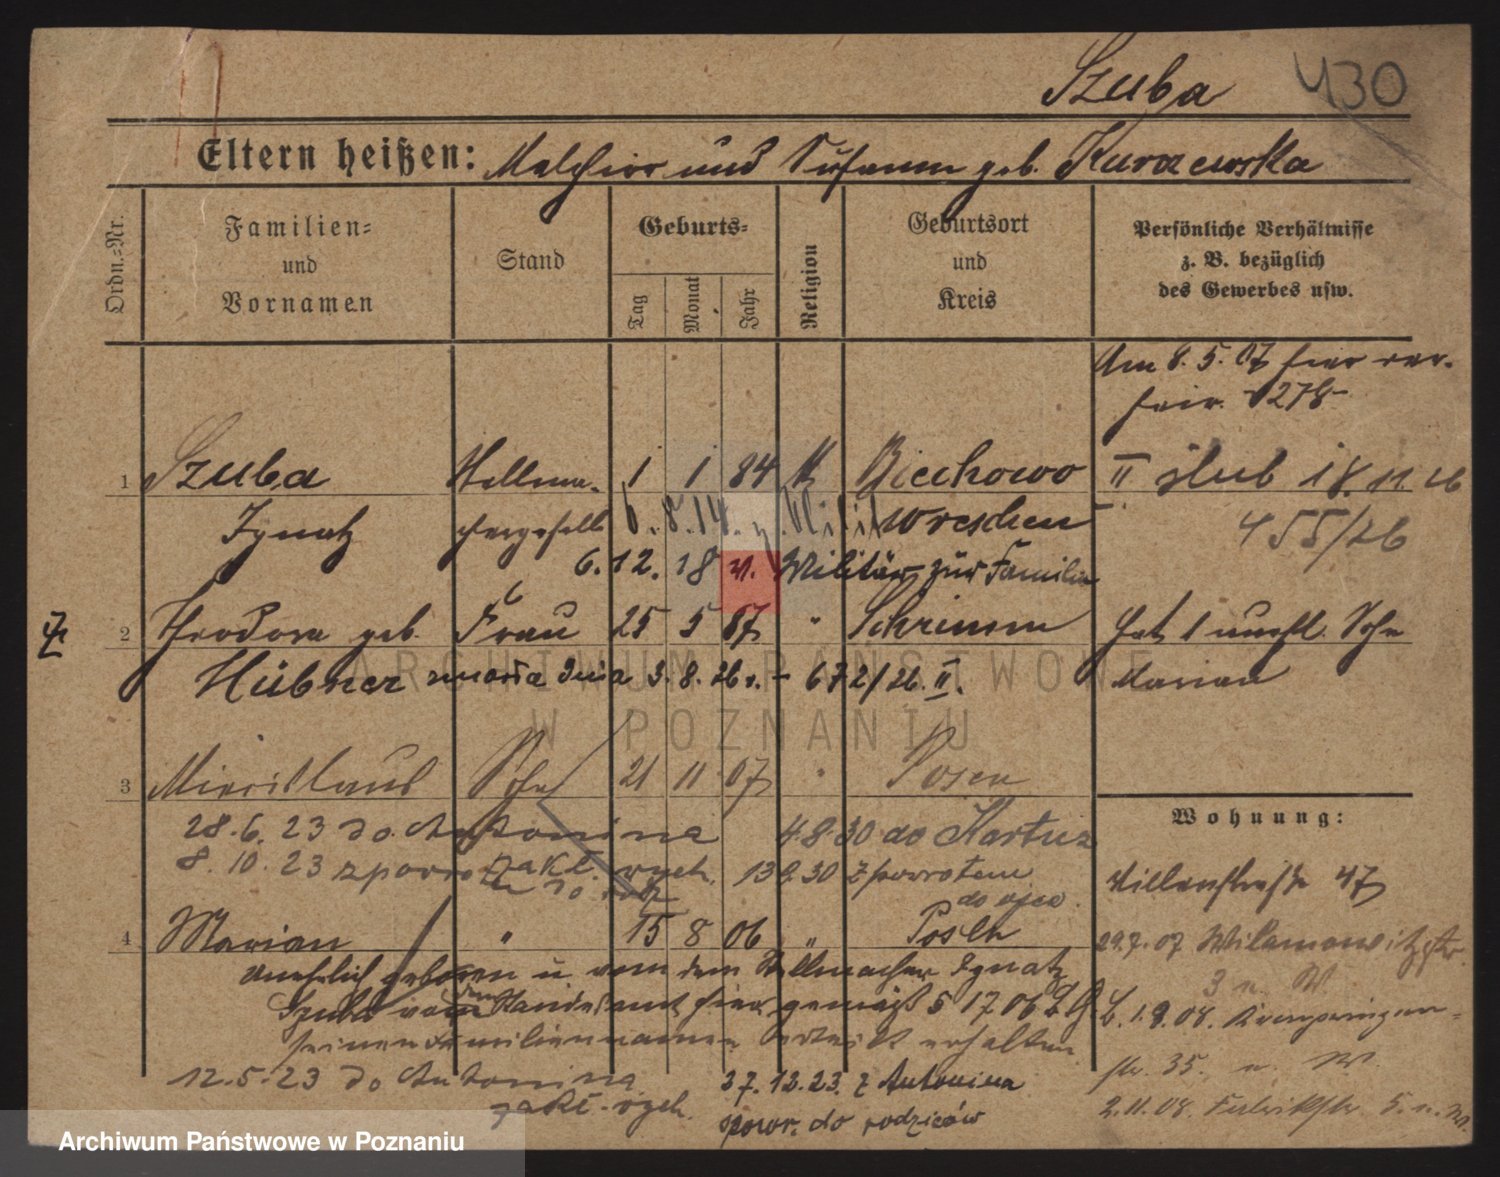 Szuba 430
Eltern heißen: Melchior und Susanna geb. Kurzewska
Ordn.-Nr.
Familien-
und
Vornamen
Stand
Geburts-
Tag
Monat
Jahr
Religion
Geburtsort
und
Kreis
Persönliche Verhältnisse
z. B. bezüglich
des Gewerbes usw.
Am 8. 5. 07 hier ver-
heir. -278-
1 Szuba Stellma- 1 1 84 K Biechowo II ślub 18. 11. 26
Ignatz chergeselle 6. 8. 14. z. Milit Wreschen 455/26
6. 12. 18 v. Militär zur Familie
2 Theodora geb. Frau 25 5 87 " Schrimm Hat 1 unehl. Sohn
Hübner zmarła dnia 3. 8. 26 r. - 672/26. II. Marian
3 Miecislaus Sohn 21 11 07 " Posen
28. 6. 23 do Antonina 4. 8. 30 do Kartuz
8. 10. 23 zakł. wych. 13 9. 30 z powrotem
do ojca.
4 Marian " 15 8 06 " Posen
Unehelich geboren u. von dem Stellmacher Ignatz
Szuba vor dem Standesamt hier gemäß § 1706 B.G.B.
seinen Familiennamen erteilt erhalten
12. 5. 23 do Antonina
zakł. wych.
27. 12. 23. z Antonina
powr. do rodziców
Wohnung:
47
29. 7. 07 Wilamowitzstr.
3 n. W.
1. 9. 08. Kronprinzen-
str. 35. n. W.
2. 11. 08. Fabrikstr. 5. n. W.
Archiwum Państwowe w Poznaniu
ARCHIWUM PAŃSTWOWE
W POZNANIU